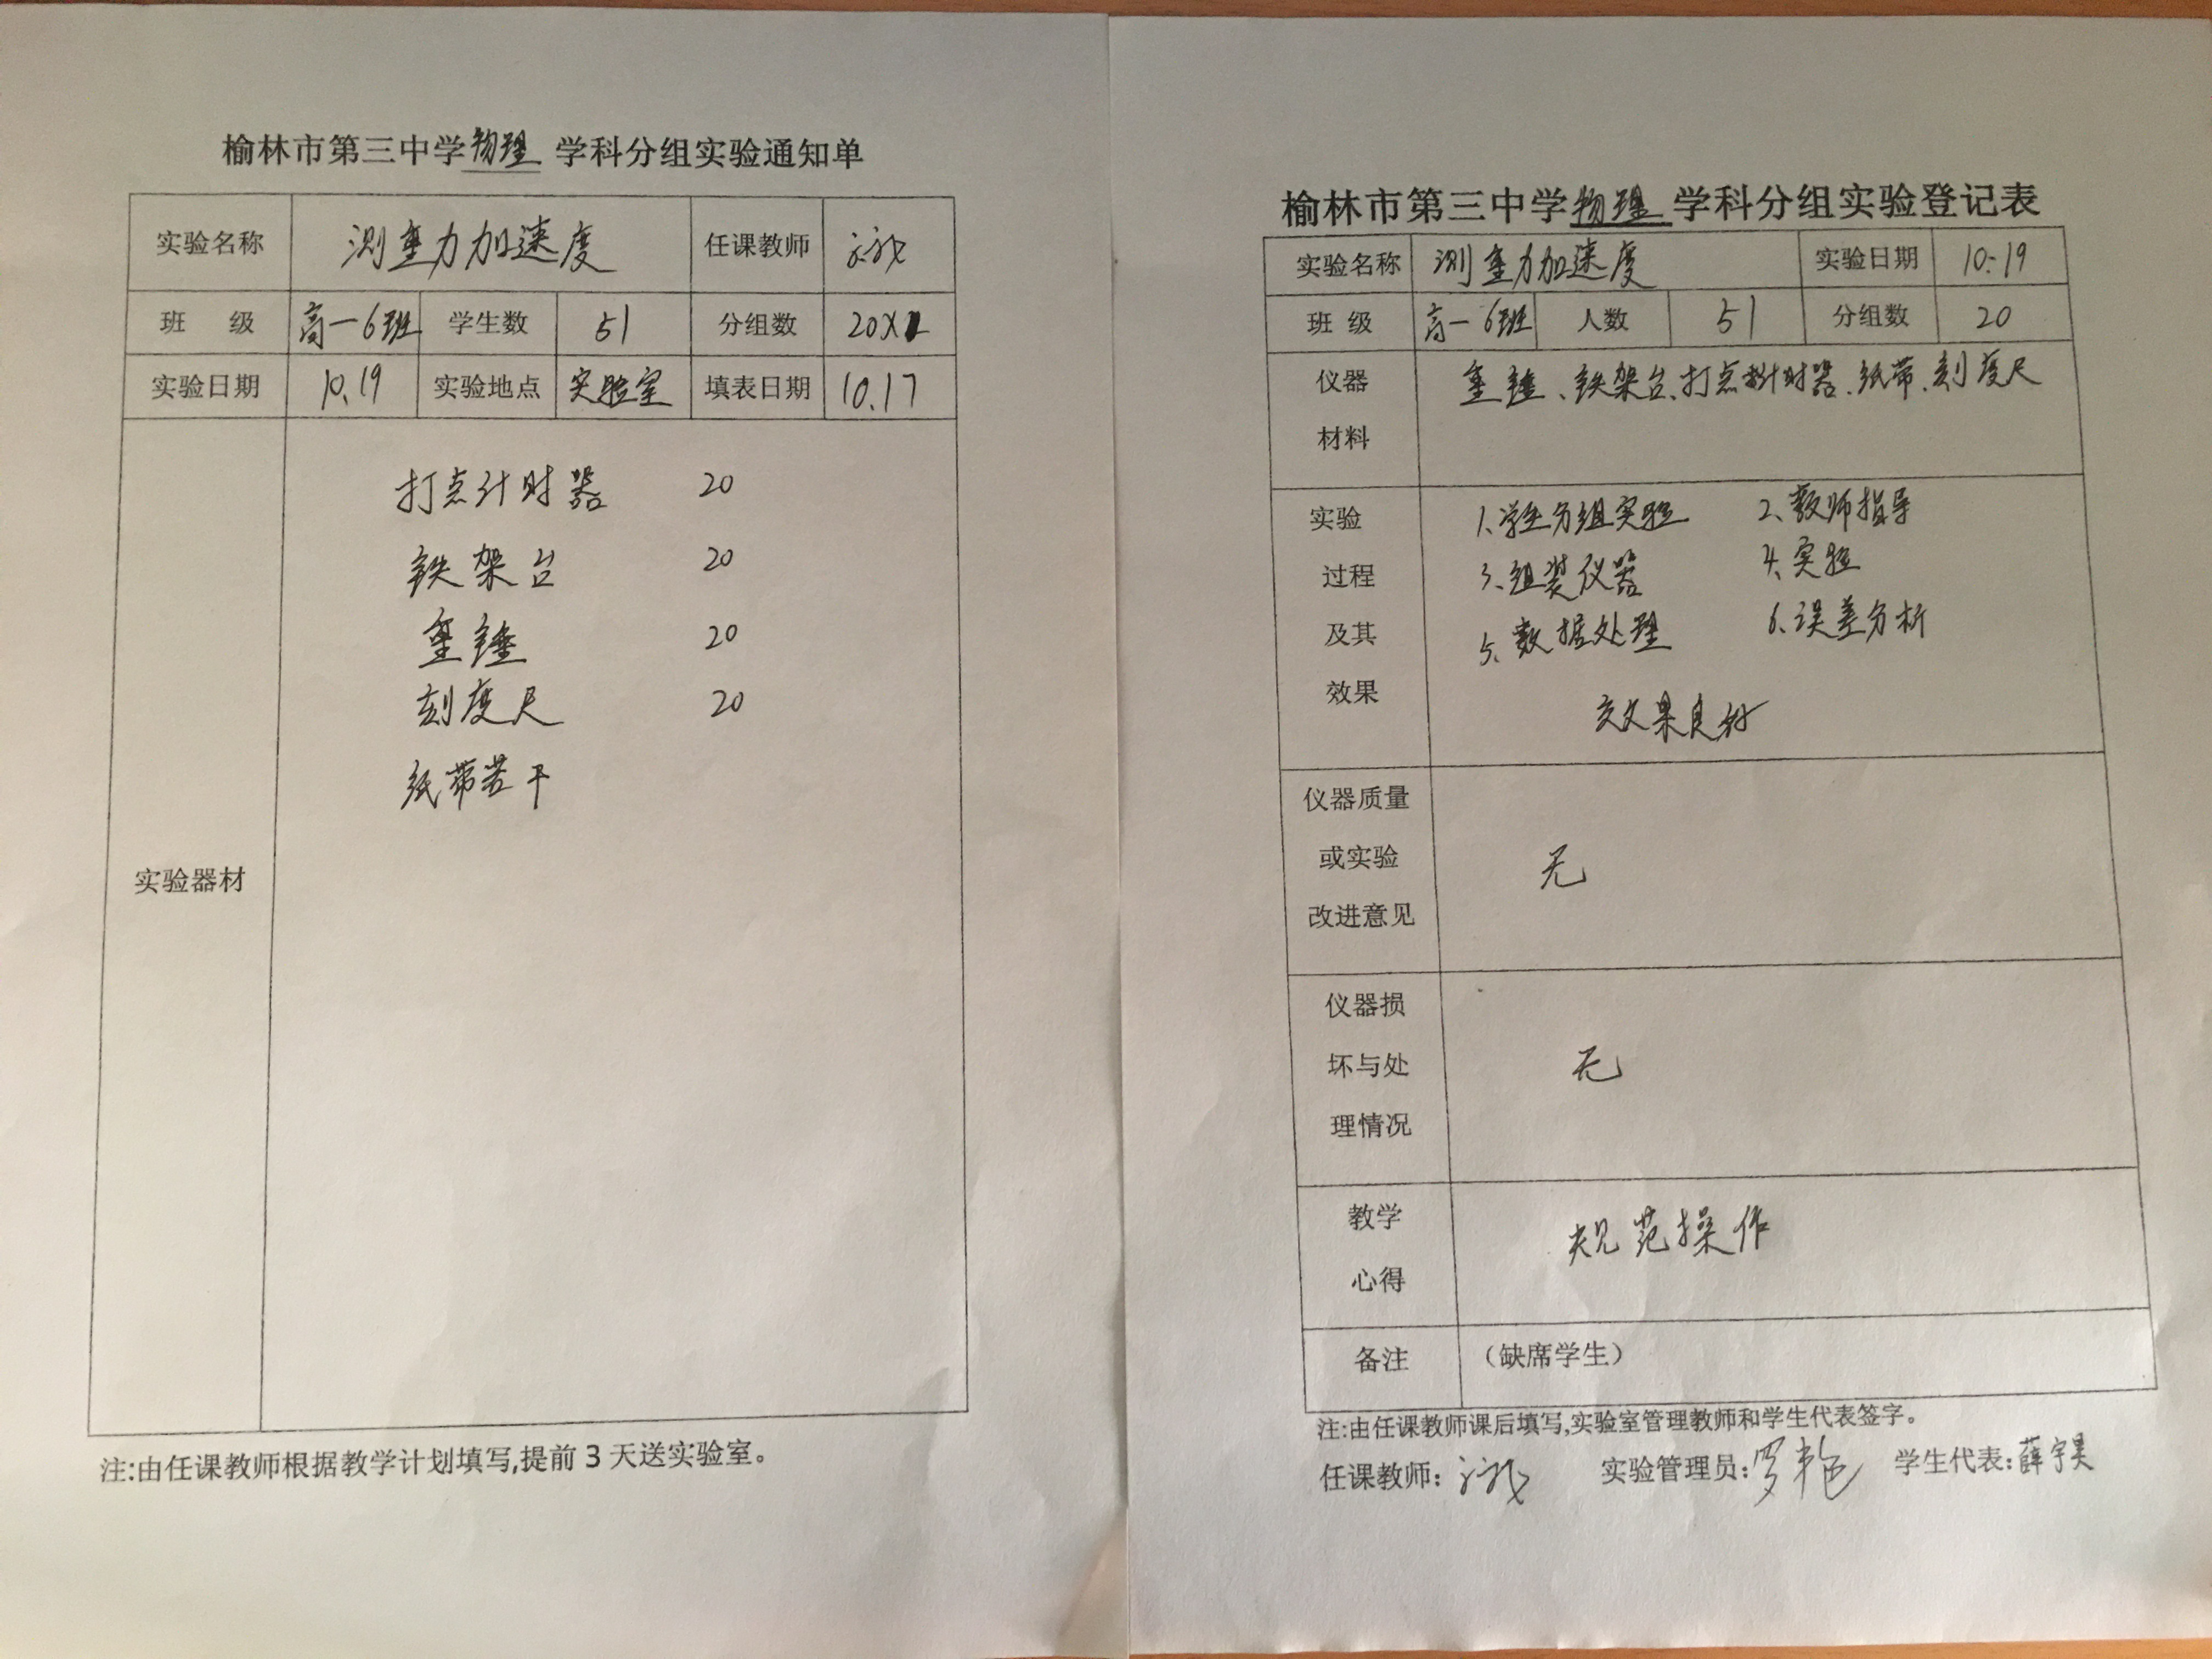 榆林市第三中学物理 学科分组实验通知单
实验名称 测重力加速度 任课教师
班 级 高一6班 学生数 51 分组数 20X
实验日期 10.19 实验地点 实验室 填表日期 10.17
实验器材
打点计时器 20
铁架台 20
重锤 20
刻度尺 20
纸带若干
注:由任课教师根据教学计划填写,提前3天送实验室。
榆林市第三中学物理 学科分组实验登记表
实验名称 测重力加速度 实验日期 10.19
班 级 高一6班 人数 51 分组数 20
仪器
材料
重锤、铁架台、打点计时器、纸带、刻度尺
实验
过程
及其
效果
1、学生分组实验 2、教师指导
3、组装仪器 4、实验
5、数据处理 6、误差分析
效果良好
仪器质量
或实验
改进意见
无
仪器损
坏与处
理情况
无
教学
心得
规范操作
备注 (缺席学生)
注:由任课教师课后填写,实验室管理教师和学生代表签字。
任课教师: 实验管理员:罗艳 学生代表:薛宇昊